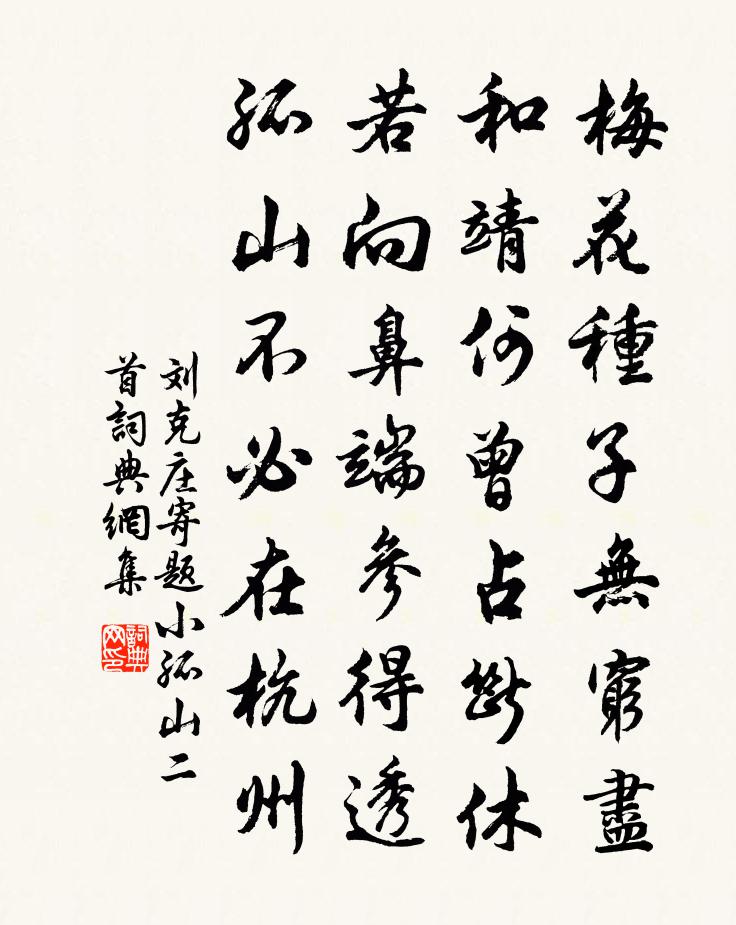 梅花種子無窮盡
和靖何曾占斷休
若向鼻端參得透
孤山不必在杭州
刘克庄寄题小孤山二
首詞典網集
詞典
网印